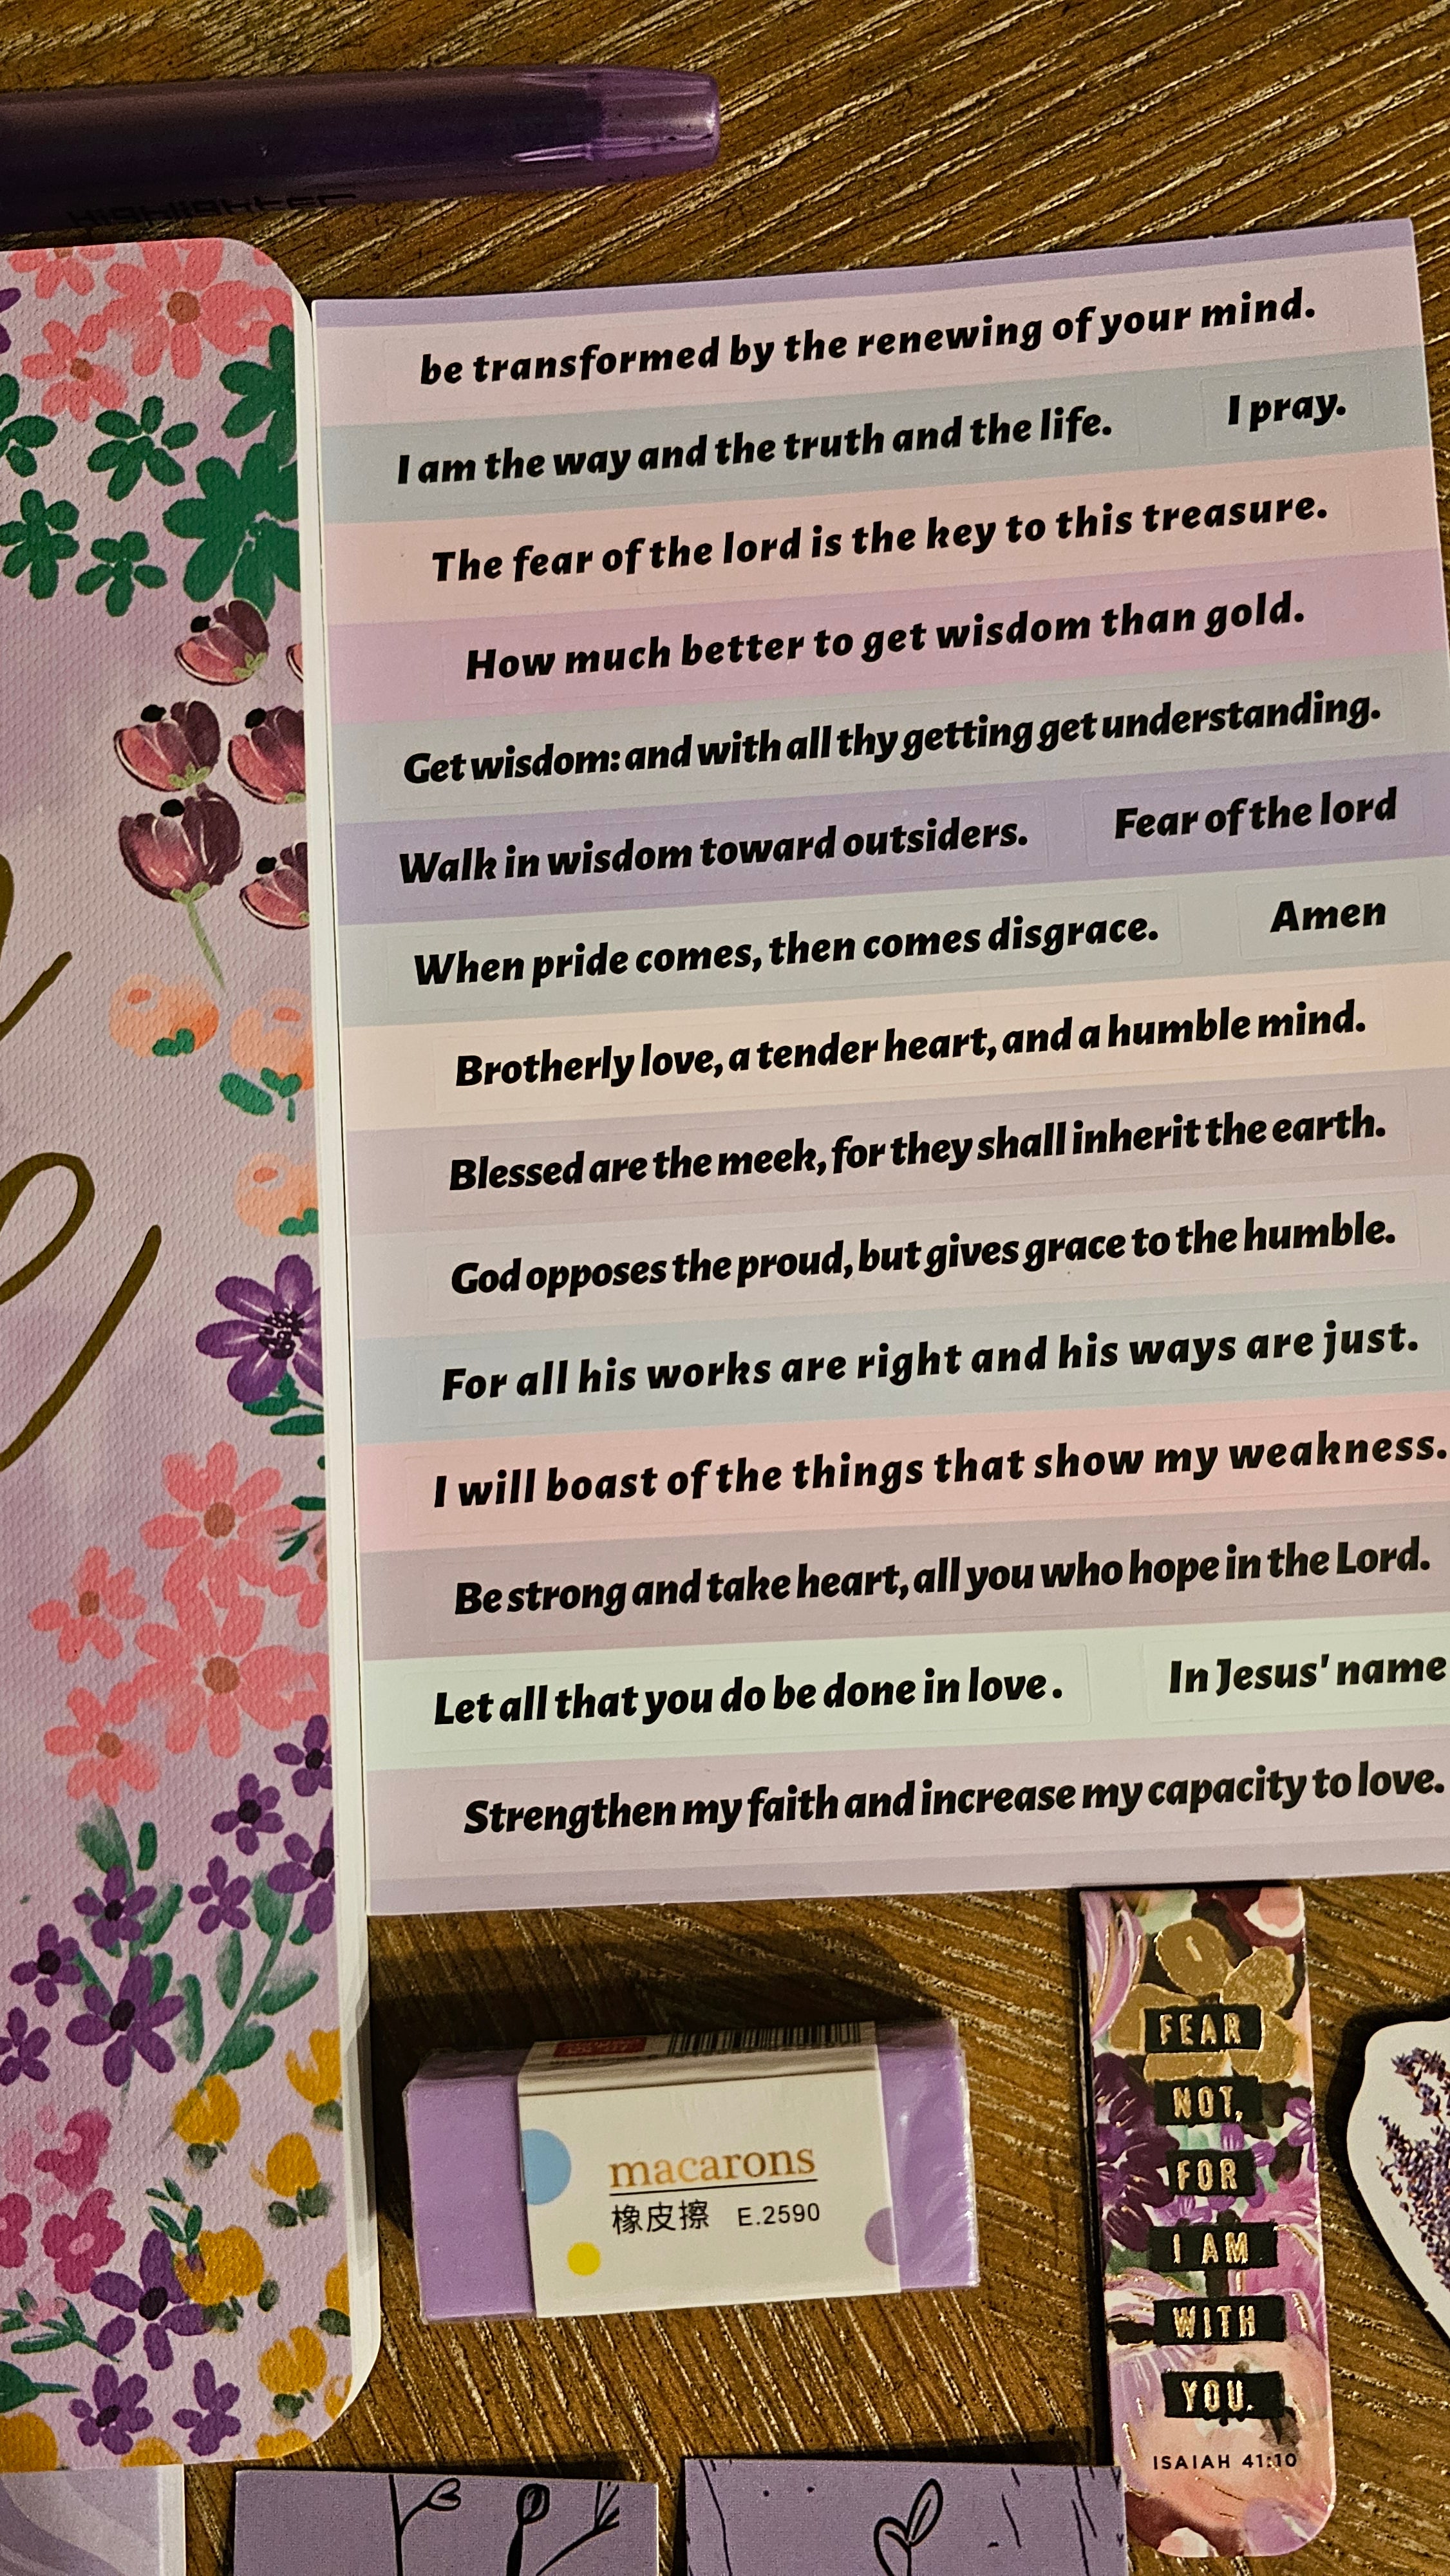 Highlighter
be transformed by the renewing of your mind.
I am the way and the truth and the life. I pray.
The fear of the lord is the key to this treasure.
How much better to get wisdom than gold.
Get wisdom: and with all thy getting get understanding.
Walk in wisdom toward outsiders. Fear of the lord
When pride comes, then comes disgrace. Amen
Brotherly love, a tender heart, and a humble mind.
Blessed are the meek, for they shall inherit the earth.
God opposes the proud, but gives grace to the humble.
For all his works are right and his ways are just.
I will boast of the things that show my weakness.
Be strong and take heart, all you who hope in the Lord.
Let all that you do be done in love. In Jesus' name
Strengthen my faith and increase my capacity to love.
macarons
橡皮擦 E.2590
FEAR
NOT,
FOR
I AM
WITH
YOU.
ISAIAH 41:10